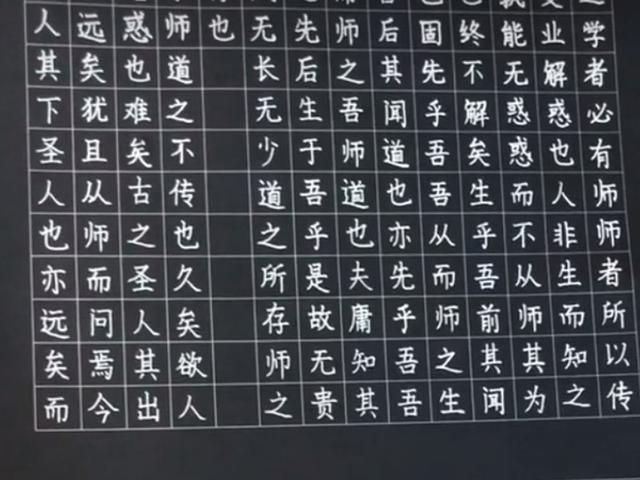 学者必有师师者所以传
业解惑也人非生而知之
能无惑惑而不从师其为
终不解矣生乎吾前其闻
固先乎吾吾从而师之生
后其闻道也亦先乎吾吾
师之吾师道也夫庸知其
先后生于吾乎是故无贵
无长无少道之所存师之
也
师道之不传也久矣欲人
惑也难矣古之圣人其出
远矣犹且从师而问焉今
人其下圣人也亦远矣而